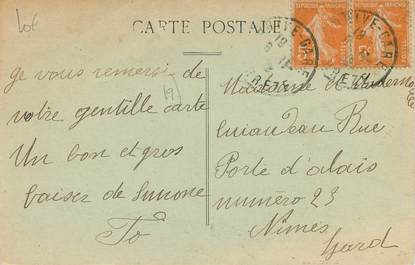 Lot
CARTE POSTALE
je vous remersi de
votre gentille carte
Un bon et gros
baiser de Simone
19
Madame
Rue
Porte d'alais
numéro 23
Nimes
Gard